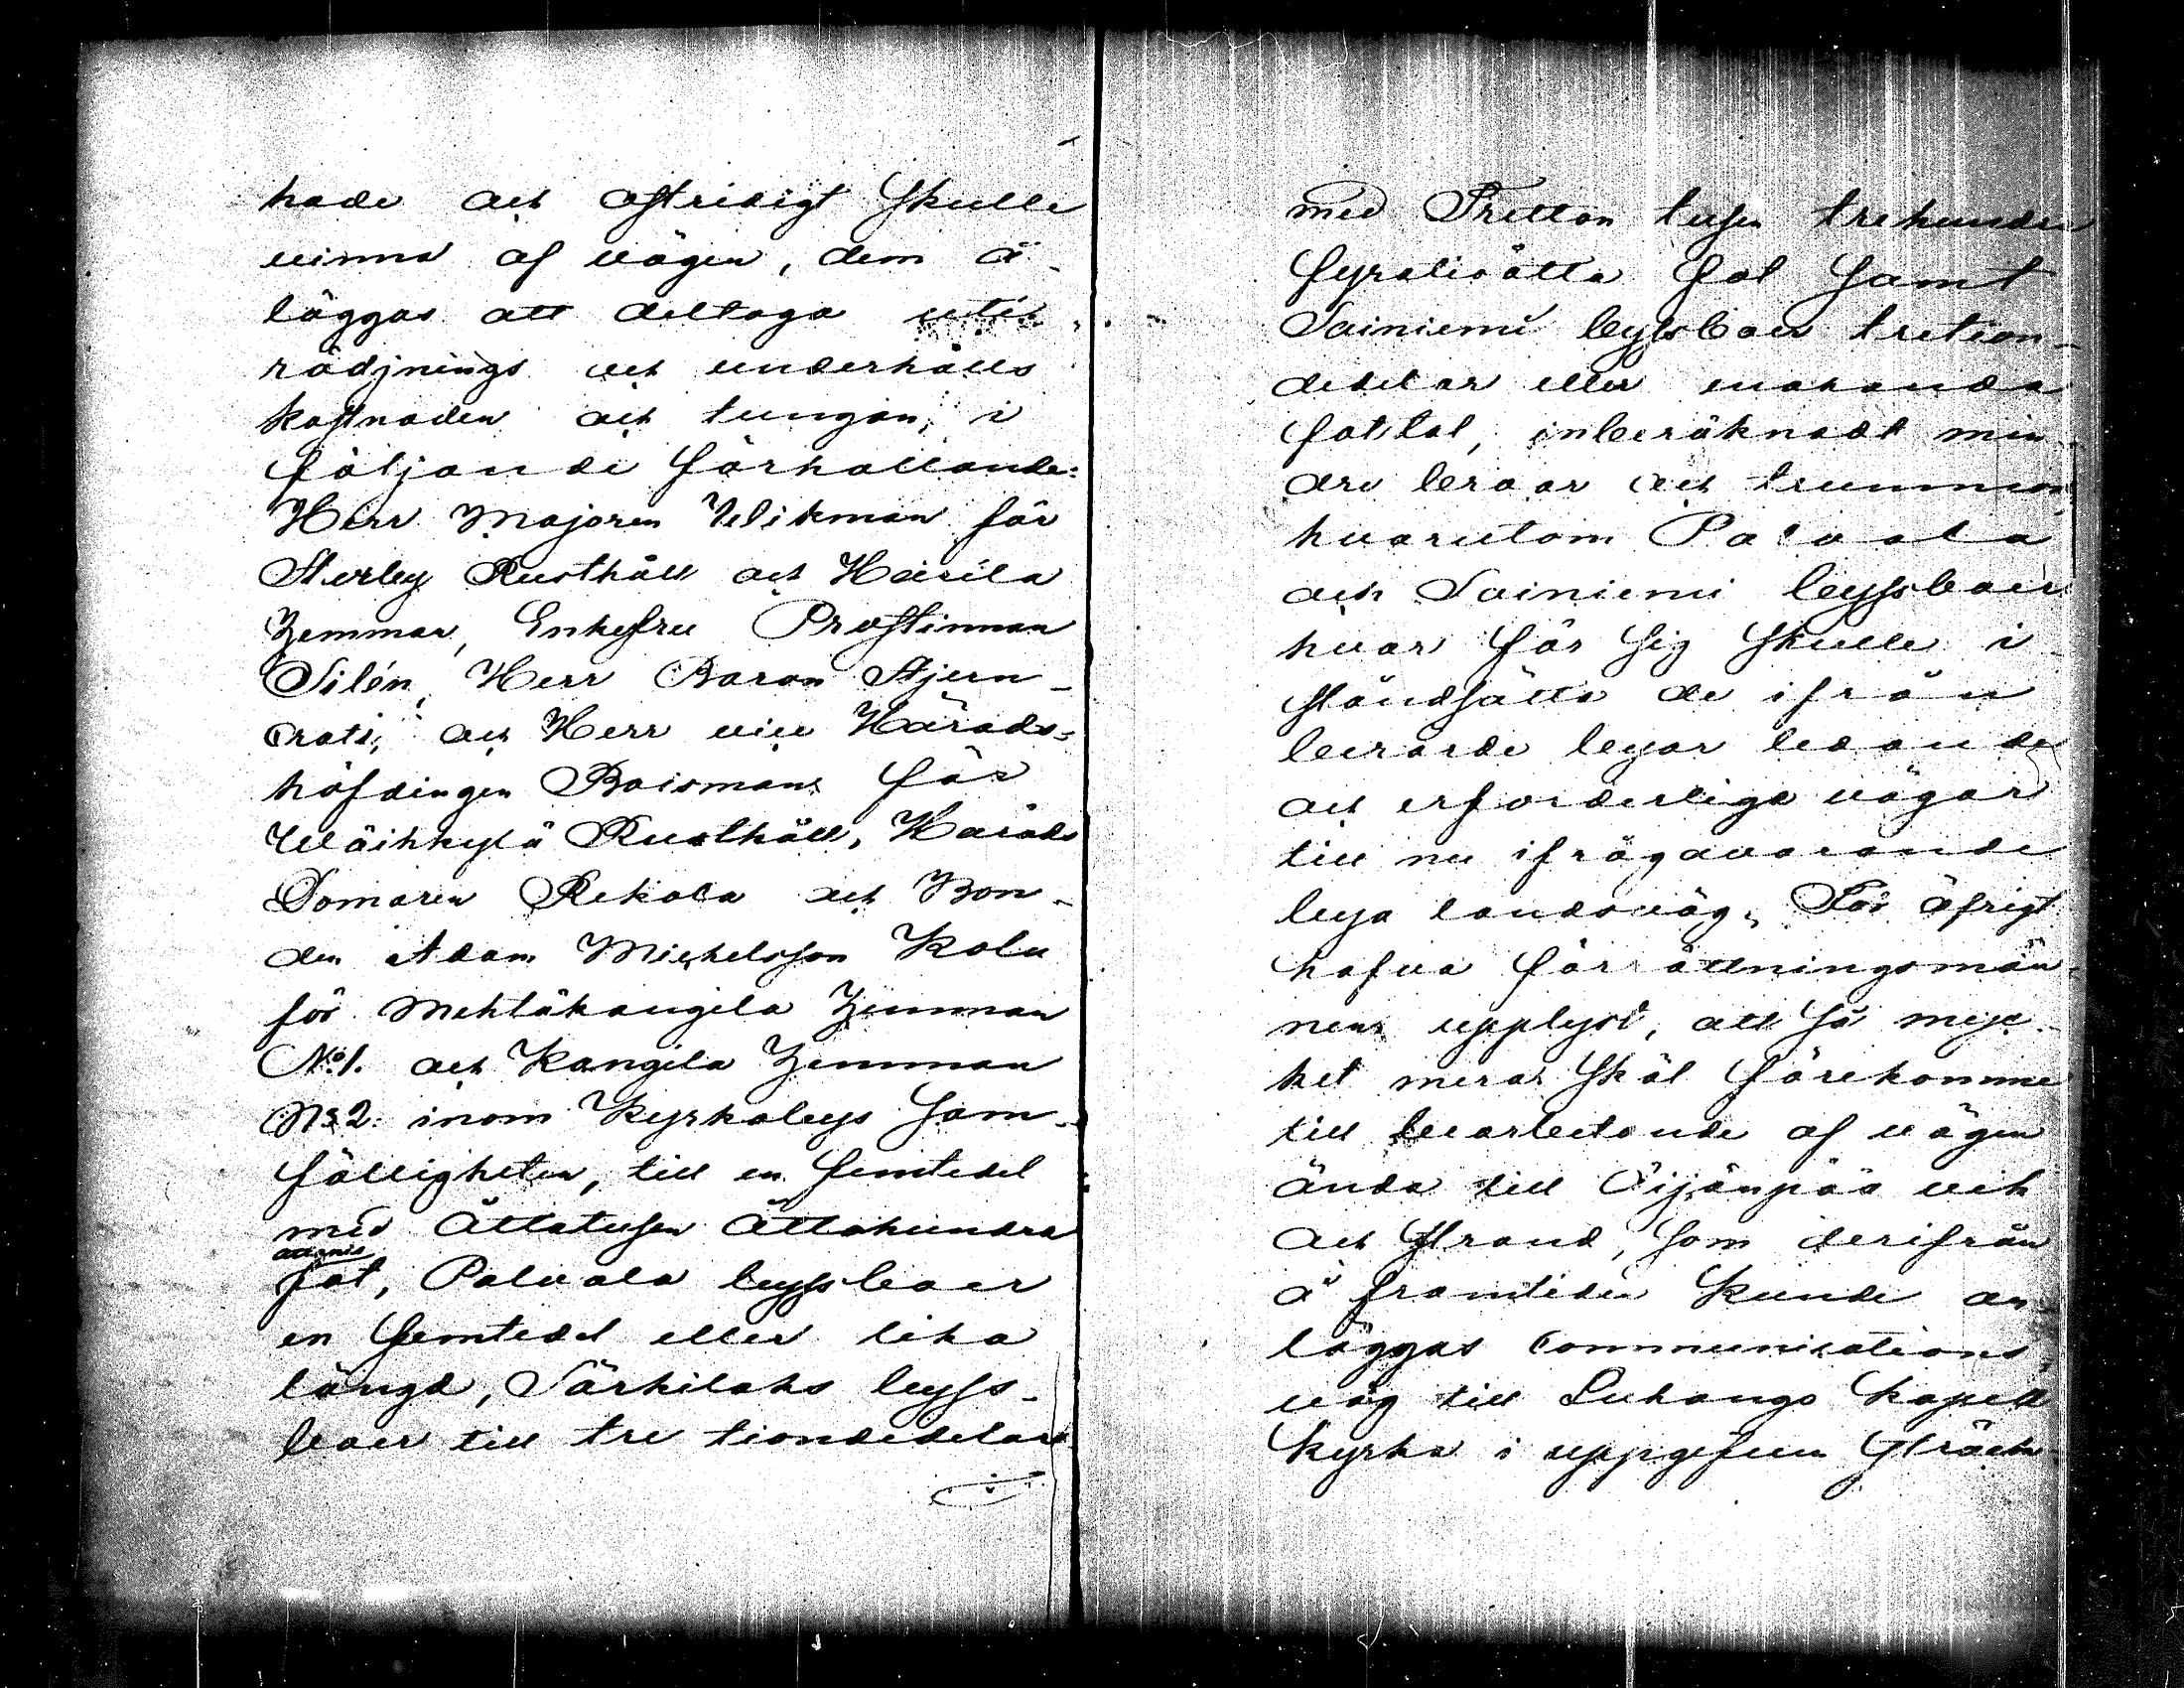 hade och ostridigt skulle
vinna af vägen, dem å-
läggas att deltaga uti
rödjnings och underhålls
kostnaden och tungan, i
följande förhållande:
Herr Majoren Wikman för
Sterley Rusthåll och Heisila
Hemman, Enkefru Prostinnan
Silén, Herr Baron Stjern-
crati, och Herr vice Härads-
höfdingen Boisman för
Wäihkylä Rusthåll, Härads
Domaren Rekola och Bon-
den Adam Michelsson Kolu
för Mehtäkangila Hemman
No 1. och Kangila Hemman
No 2. inom Kyrkobys Sam-
fälligheten, till en femtedel
med Åttatusen Åttahundra
fot, Paluala byssboer
en femtedel eller lika
längd, Särkilaks byss-
boer till tre tiondedelar
med Tretton tusen trehundra
fyratioåtta fot samt
Tainiemi bysboer tretion-
dedelar eller enahanda
fottal, inberäknadt min-
dre broar och trummor,
hvarutom Paluala
och Tainiemi byssboer
hvar för sig skulle i
ståndsätta de ifrån
berörde byar ledande
och erforderliga vägar
till nu ifrågavarande
nya landsväg. För öfrigt
hafva förrättningsmän-
nen upplyst, att så myc-
ket mera skäl förekomme
till bearbetande af vägen
ända till Äijänpää vik
och strand, som derifrån
å framtiden kunde an-
läggas communications
väg till Luhango Kapell
Kyrka i uppgifven sträck-